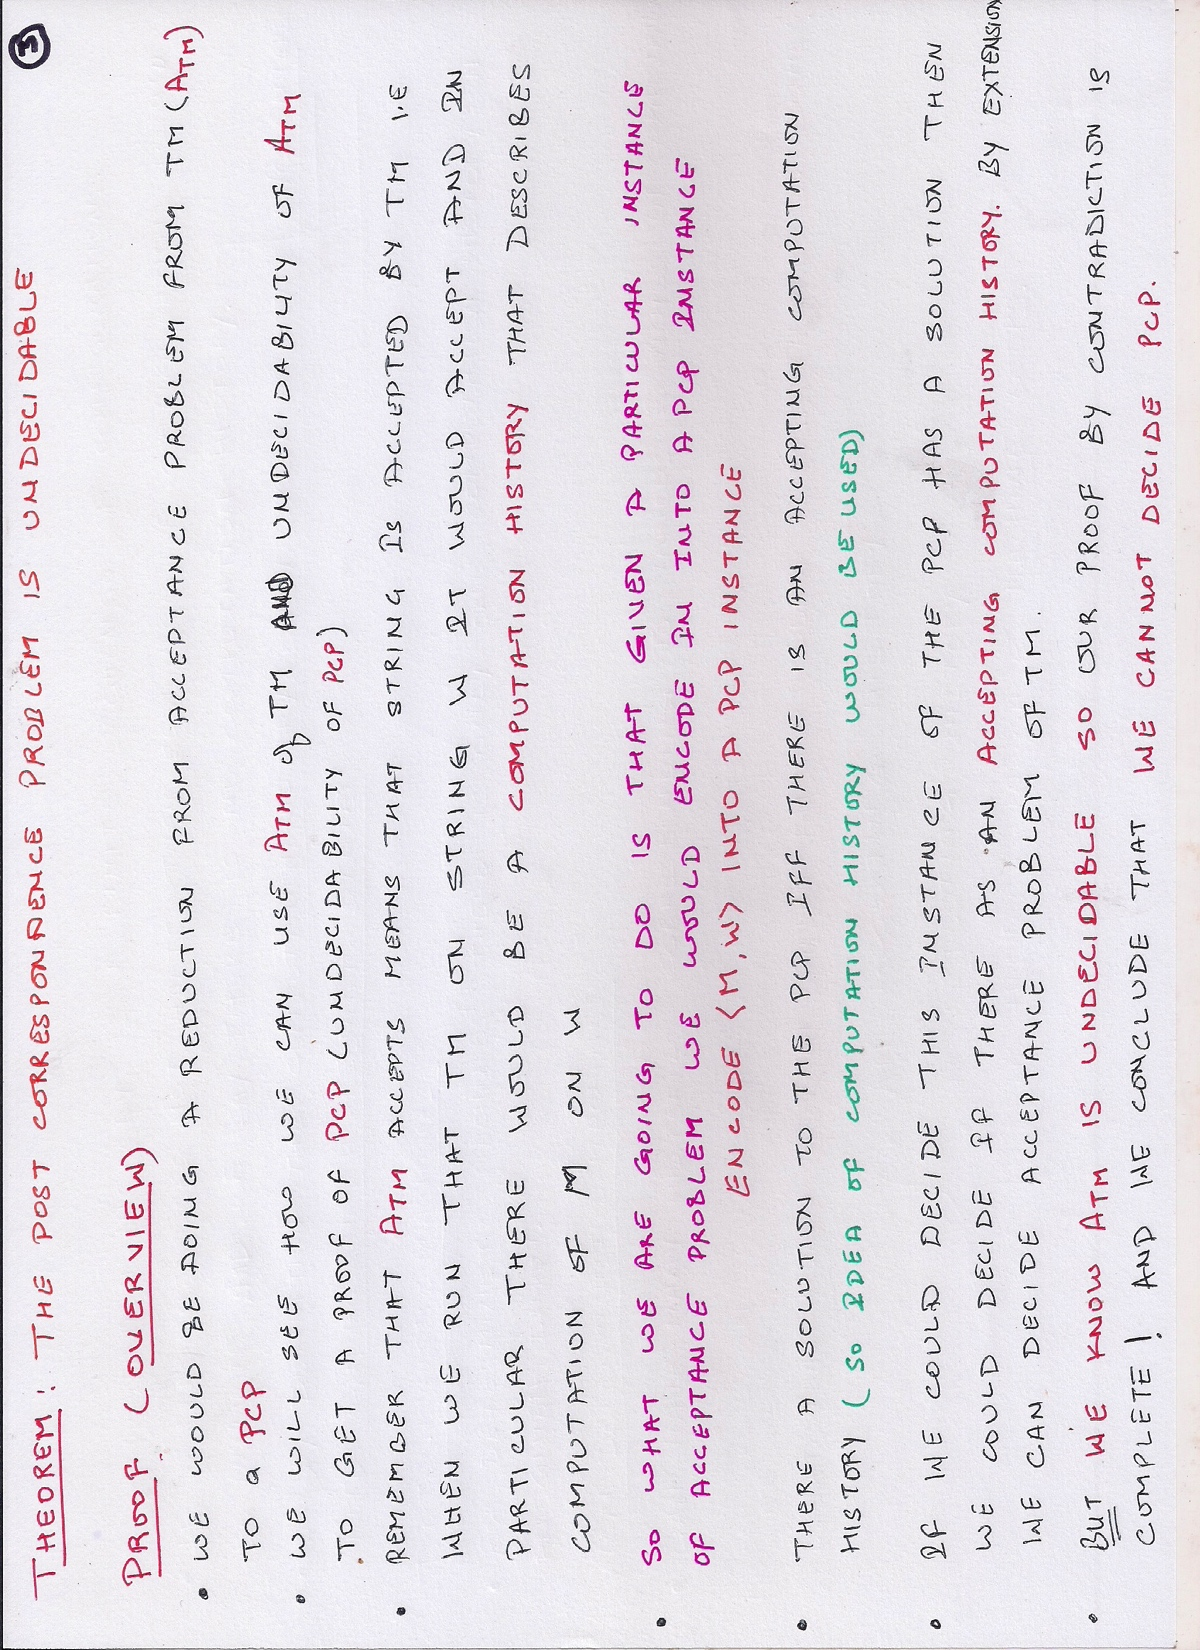 3
THEOREM: THE POST CORRESPONDENCE PROBLEM IS UNDECIDABLE
PROOF (OVERVIEW)
• WE WOULD BE DOING A REDUCTION FROM ACCEPTANCE PROBLEM FROM TM (ATM)
TO a PCP
• WE WILL SEE HOW WE CAN USE ATM of TM UNDECIDABILITY OF ATM
TO GET A PROOF OF PCP (UNDECIDABILITY OF PCP)
• REMEMBER THAT ATM ACCEPTS MEANS THAT STRING IS ACCEPTED BY TM I.E
WHEN WE RUN THAT TM ON STRING W IT WOULD ACCEPT AND IN
PARTICULAR THERE WOULD BE A COMPUTATION HISTORY THAT DESCRIBES
COMPUTATION OF M ON W
• SO WHAT WE ARE GOING TO DO IS THAT GIVEN A PARTICULAR INSTANCE
OF ACCEPTANCE PROBLEM WE WOULD ENCODE IN INTO A PCP INSTANCE
ENCODE ⟨M,W⟩ INTO A PCP INSTANCE
• THERE A SOLUTION TO THE PCP IFF THERE IS AN ACCEPTING COMPUTATION
HISTORY (SO IDEA OF COMPUTATION HISTORY WOULD BE USED)
• IF WE COULD DECIDE THIS INSTANCE OF THE PCP HAS A SOLUTION THEN
WE COULD DECIDE IF THERE AS AN ACCEPTING COMPUTATION HISTORY. BY EXTENSION
WE CAN DECIDE ACCEPTANCE PROBLEM OF TM.
• BUT WE KNOW ATM IS UNDECIDABLE SO OUR PROOF BY CONTRADICTION IS
COMPLETE! AND WE CONCLUDE THAT WE CANNOT DECIDE PCP.